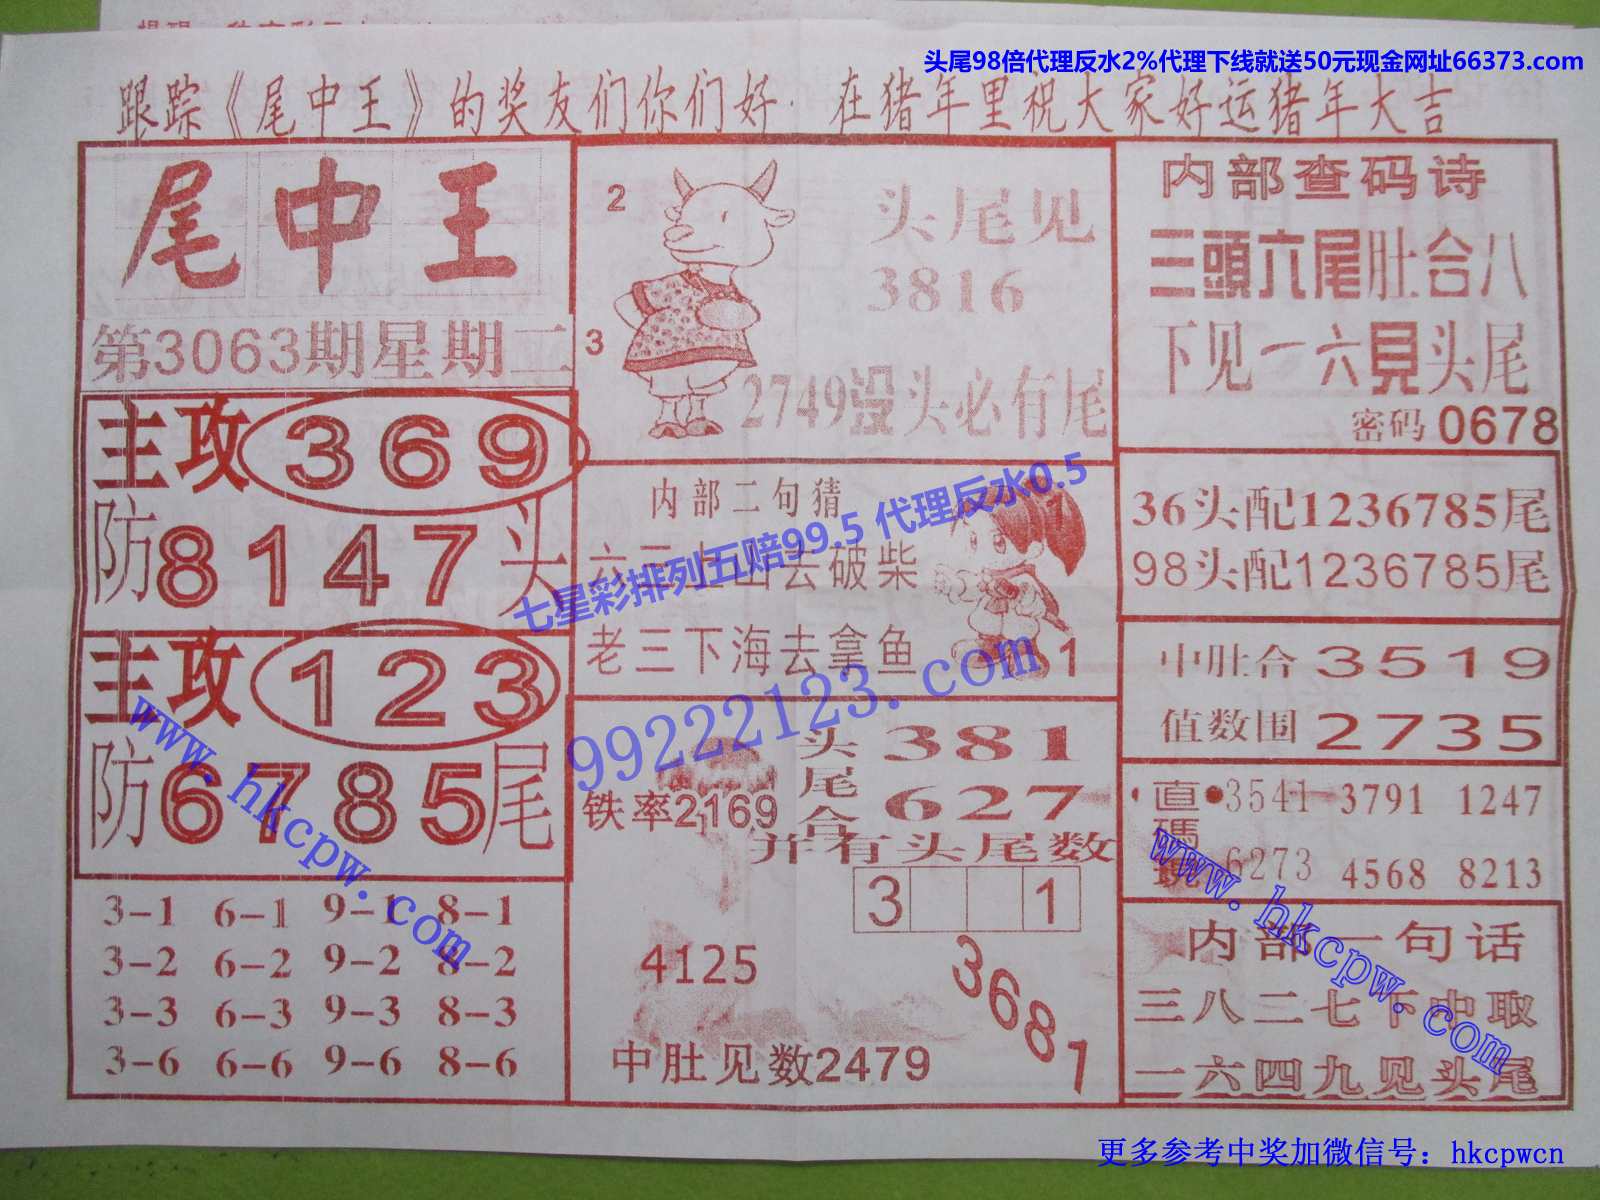 头尾98倍代理反水2%代理下线就送50元现金网址66373.com
跟踪《尾中王》的奖友们你们好·在猪年里祝大家好运猪年大吉
尾中王
第3063期星期二
主攻369
防8147头
主攻123
防6785尾
3-1 6-1 9-1 8-1
3-2 6-2 9-2 8-2
3-3 6-3 9-3 8-3
3-6 6-6 9-6 8-6
2
3
头尾见
3816
2749没头必有尾
内部二句猜
去破柴
老三下海去拿鱼
1
1
七星彩排列五赔99.5 代理反水0.5
99222123.com
铁率2169
头尾合
381
627
并有头尾数
3 1
4125
3681
中肚见数2479
内部查码诗
三頭六尾肚合八
下见一六見头尾
密码0678
36头配1236785尾
98头配1236785尾
中肚合3519
值数围2735
直碼
3541 3791 1247
6273 4568 8213
内部一句话
三八二七下中取
一六四九见头尾
www.hkcpw.com
www.hkcpw.com
更多参考中奖加微信号：hkcpwcn